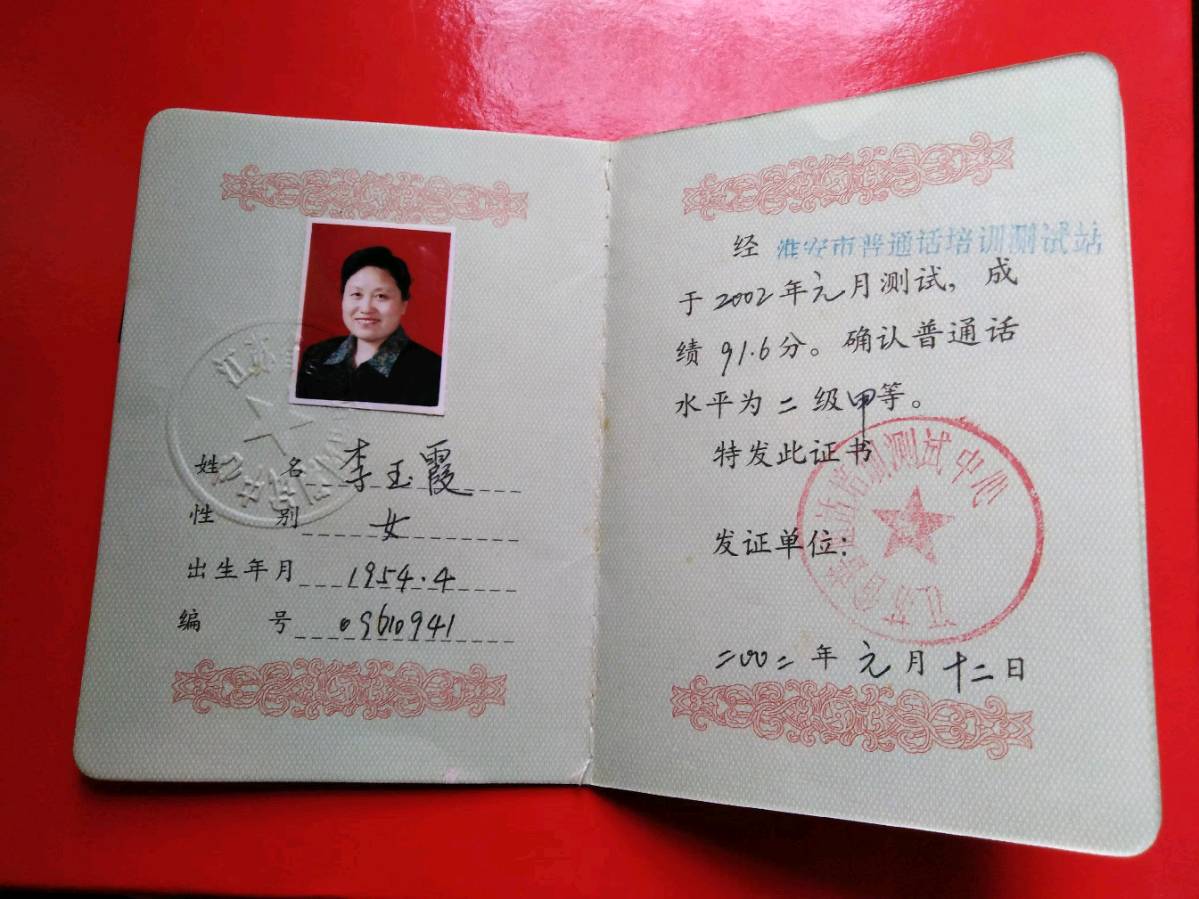 江苏省
姓 名 李玉霞
性 别 女
出生年月 1954.4
编 号 09610941
经 淮安市普通话培训测试站
于2002年元月测试，成
绩 91.6分。确认普通话
水平为 二 级甲等。
特发此证书
发证单位：
江苏省普通话培训测试中心
二00二年 元月十二日